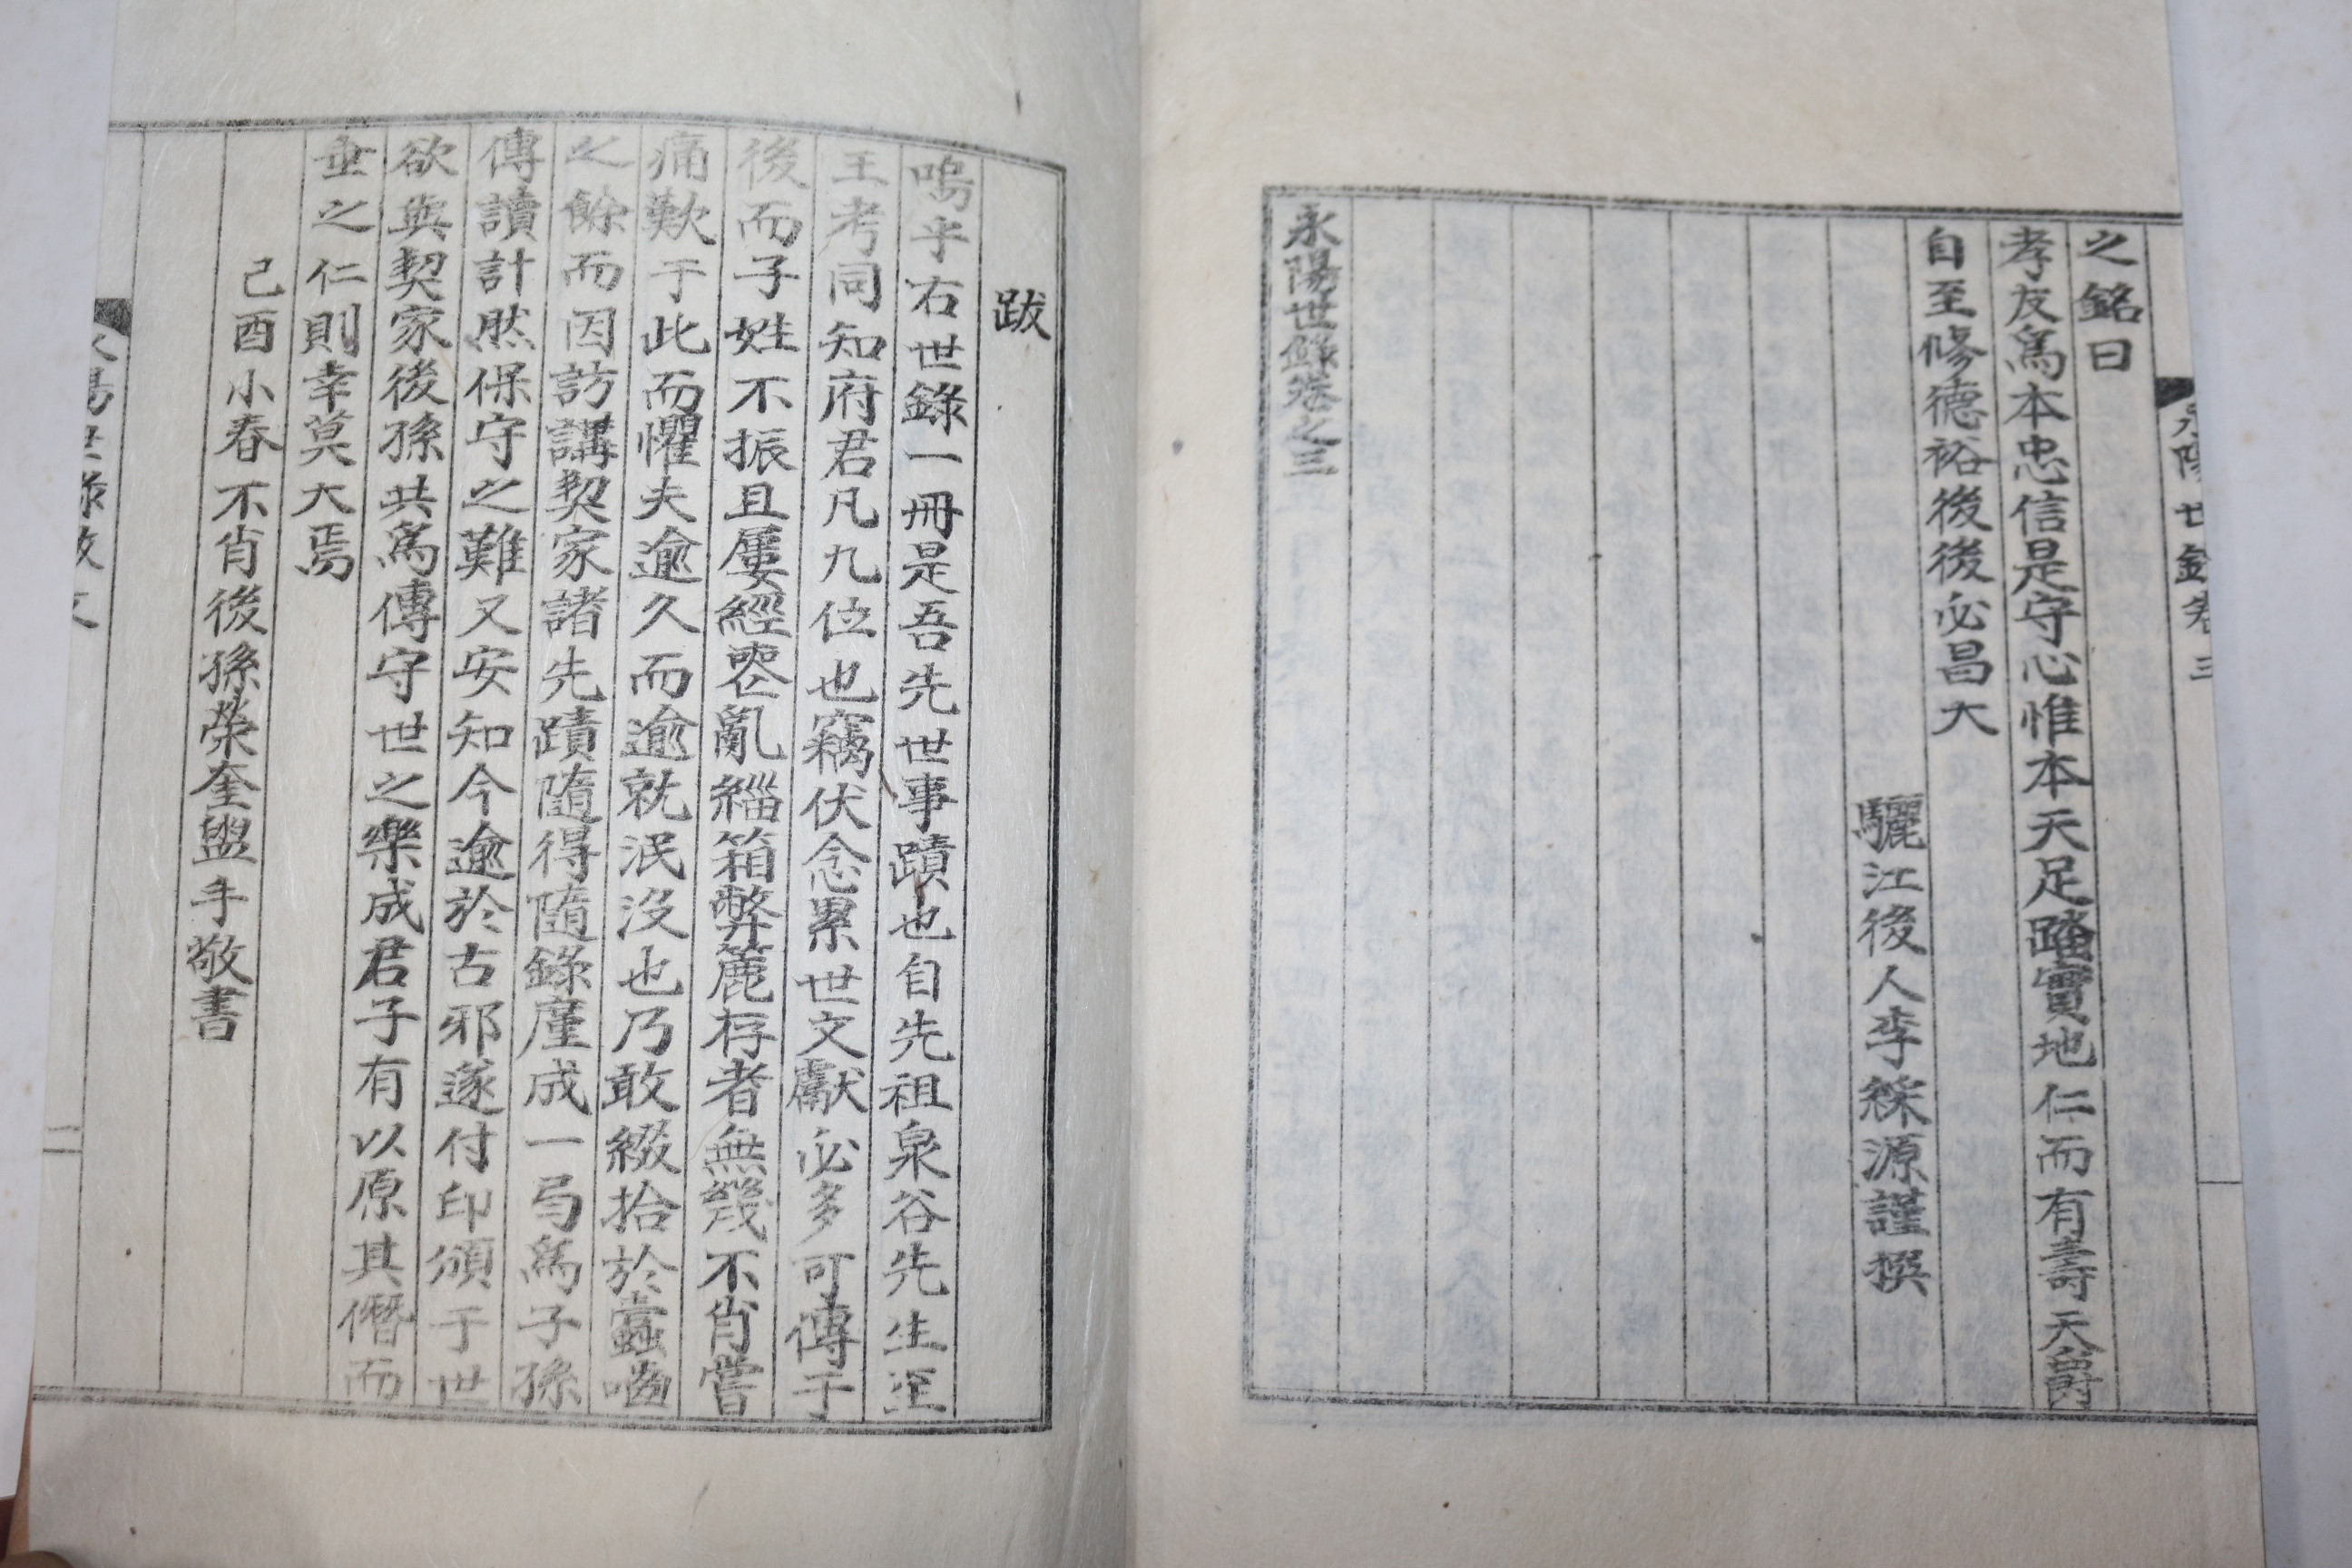 之銘曰
孝友爲本忠信是守心惟本天足踏實地仁而有壽天爵
自至修德裕後後必昌大
驪江後人李源謹撰
永陽世錄卷之三
永陽世錄卷三
跋
嗚乎右世錄一冊是吾先世事蹟也自先祖泉谷先生至
王考同知府君凡九位也竊伏念累世文獻必多可傳于
後而子姓不振且屢經兵亂緇箱弊簏存者無幾不肖嘗
痛歎于此而懼夫逾久而逾就泯沒也乃敢綴拾於蠹嚙
之餘而因訪講契家諸先蹟隨得隨錄廑成一局爲子孫
傳讀計然保守之難又安知今逾於古邪遂付印頒于世
欲與契家後孫共爲傳守世之樂成君子有以原其僭而
垂之仁則幸莫大焉
己酉小春不肖後孫榮奎盥手敬書
永陽世錄跋文
二